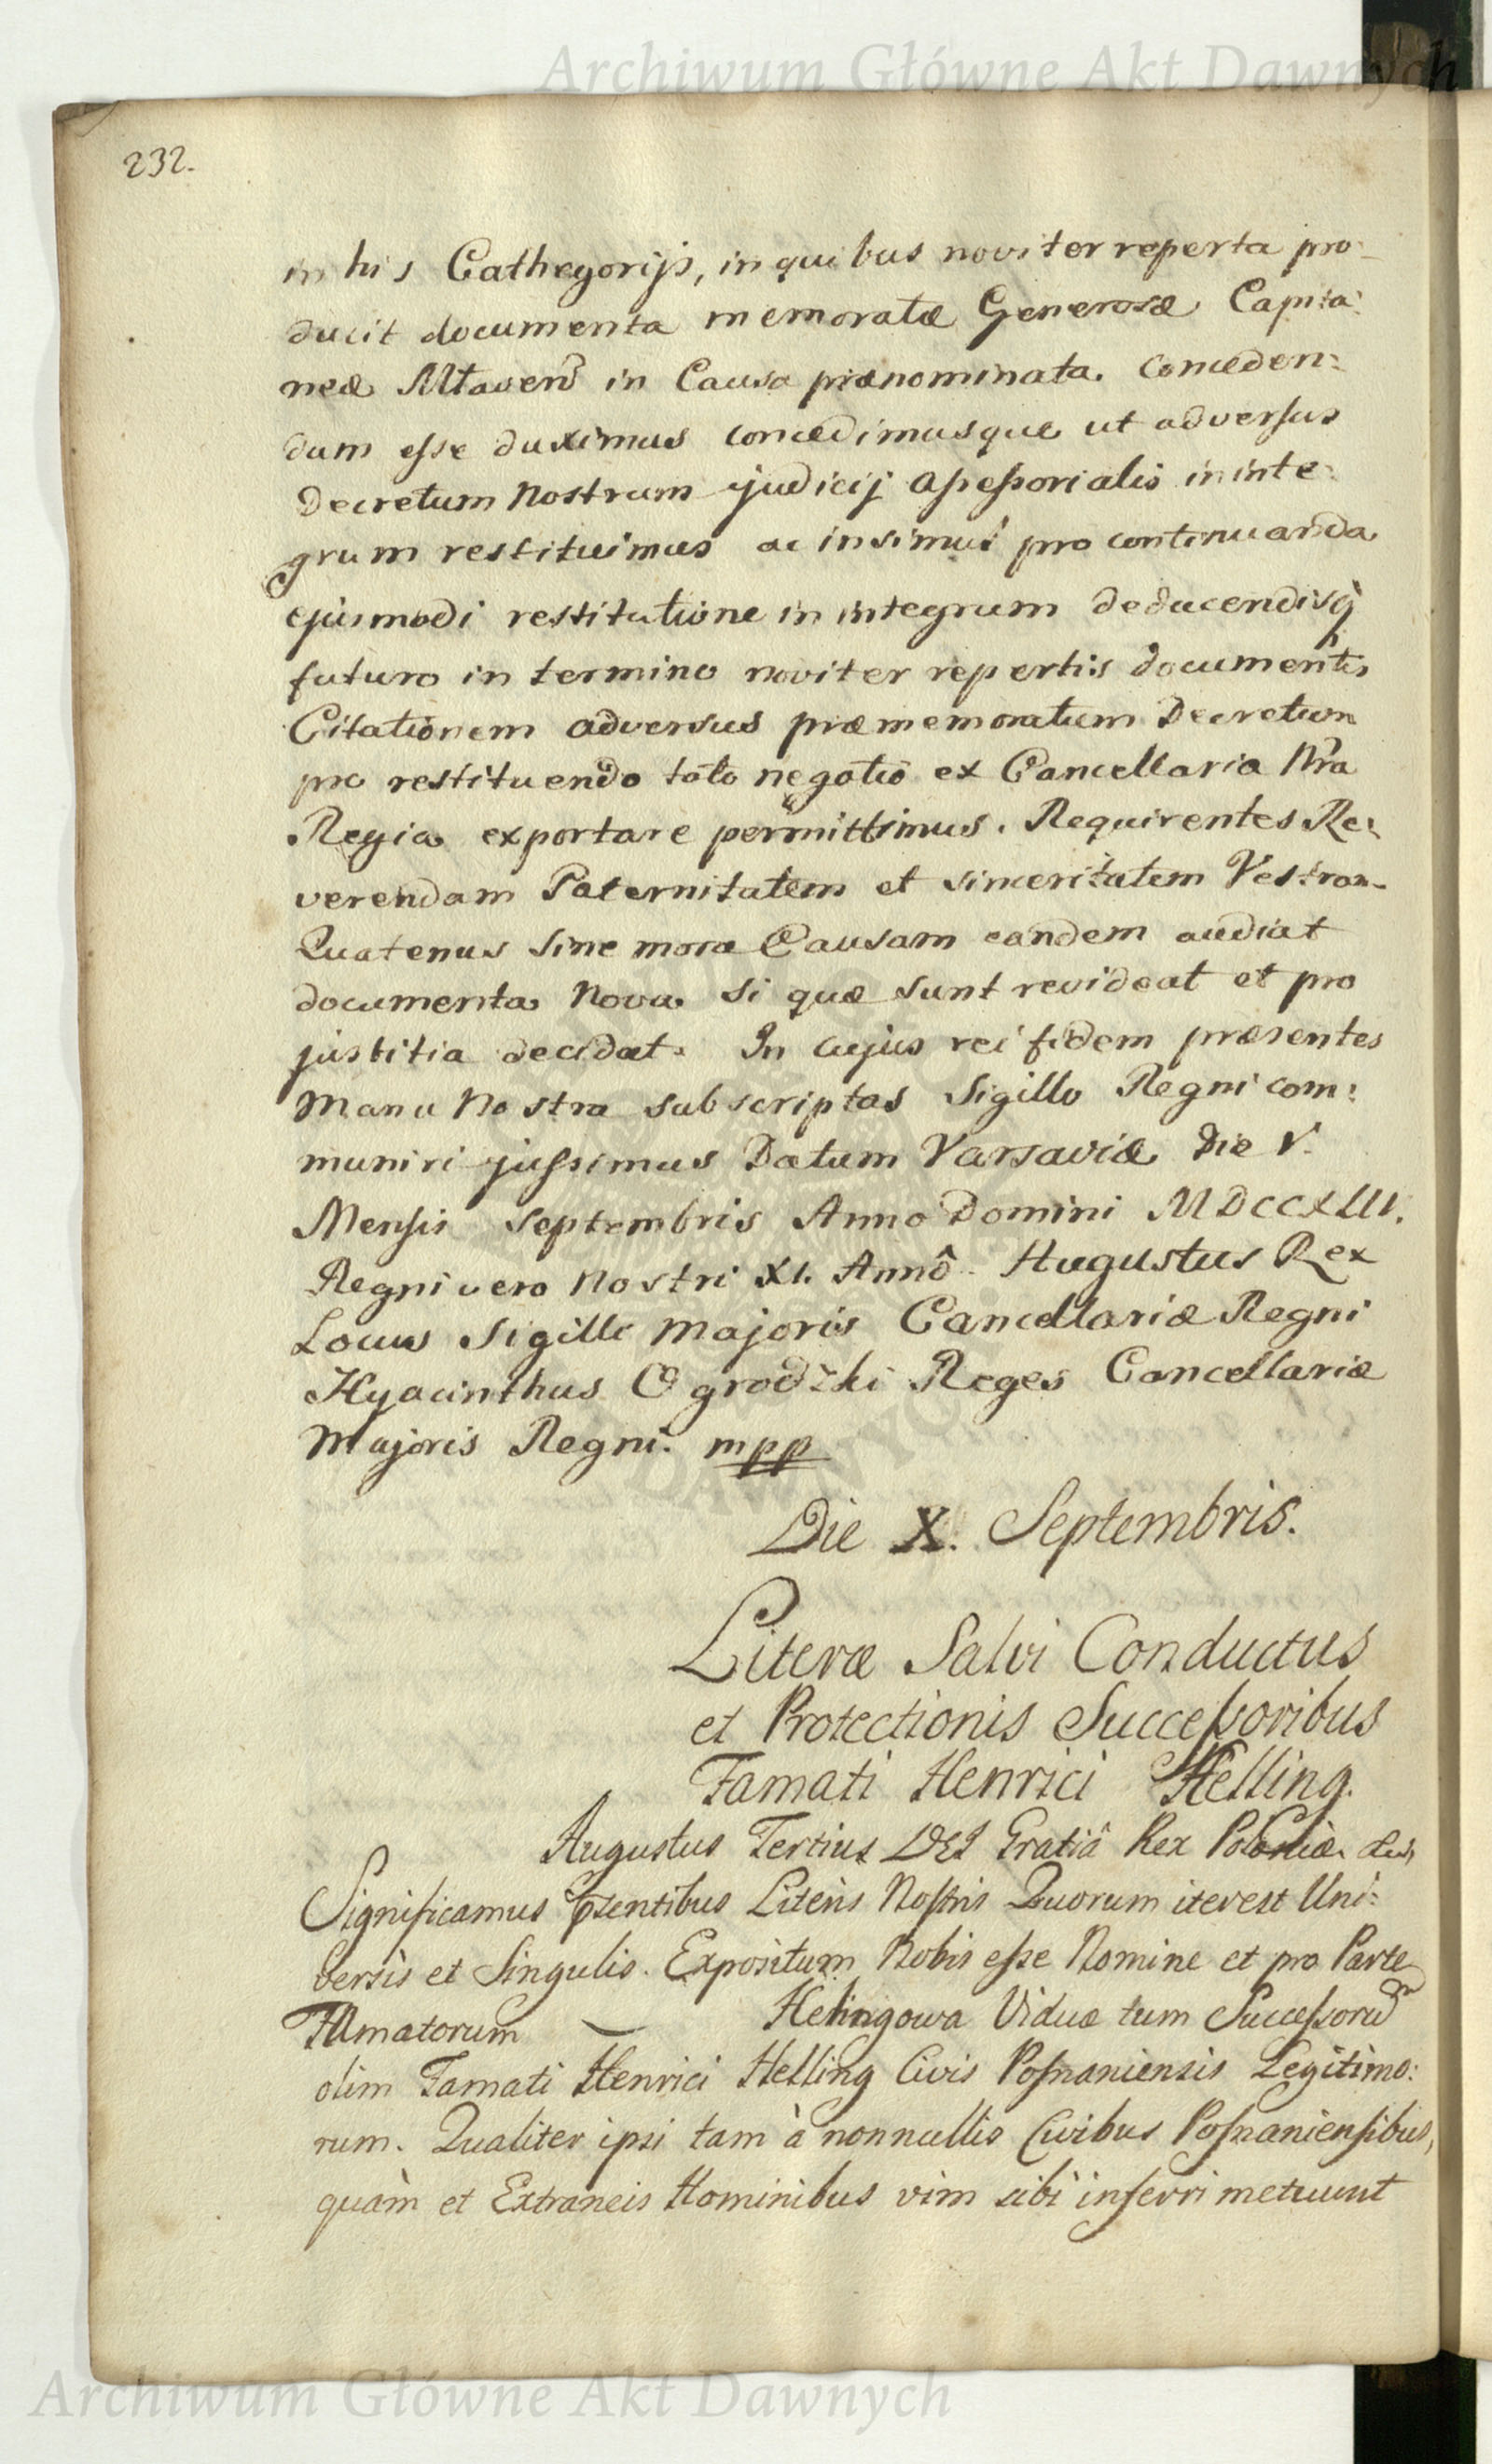 Archiwum Główne Akt Dawnych
232.
in his Cathegorijs, in quibus noviter reperta pro-
ducit documenta memoratæ Generosæ Capita:
neæ Mławen in Causa prænominata. conceden:
dum esse duximus concedimusque ut adversus
Decretum Nostrum judicij assessorialis in inte:
grum restituimus ac insimul pro continuanda
ejusmodi restitutione in integrum deducendisq
futuro in termino noviter repertis documentis
Citationem adversus præmemoratum Decretum
pro restituendo toto negotio ex Cancellaria Nra
Regia exportare permittimus. Requirentes Re:
verendam Paternitatem et sinceritatem Vestram
Quatenus sine mora Causam eandem audiat
documenta Nova si quæ sunt revideat et pro
justitia decidat. In cujus rei fidem præsentes
Manu Nostra subscriptas Sigillo Regni com:
muniri jussimus Datum Varsaviæ Die V.
Mensis Septembris Anno Domini MDCCXLIII.
Regni vero Nostri XI. Annô. Augustus Rex
Locus Sigilli Majoris Cancellariæ Regni
Hyacinthus Ogrodzki Reges Cancellariæ
Majoris Regni. mpp
Die X. Septembris.
Literæ Salvi Conductus
et Protectionis Successoribus
Famati Henrici Helling.
Augustus Tertius DEI Gratiâ Rex Poloniæ
Significamus pzentibus Literis Nostris Quorum iterest Uni:
versis et Singulis. Expositum Nobis esse Nomine et pro Parte
Famatorum — Helingowa Viduæ tum Successorũ
olim Famati Henrici Helling Civis Posnaniensis Legitimo:
rum. Qualiter ipsi tam à nonnullis Civibus Posnaniensibus,
quàm et Extraneis Hominibus vim sibi inferri metuunt
Archiwum Główne Akt Dawnych